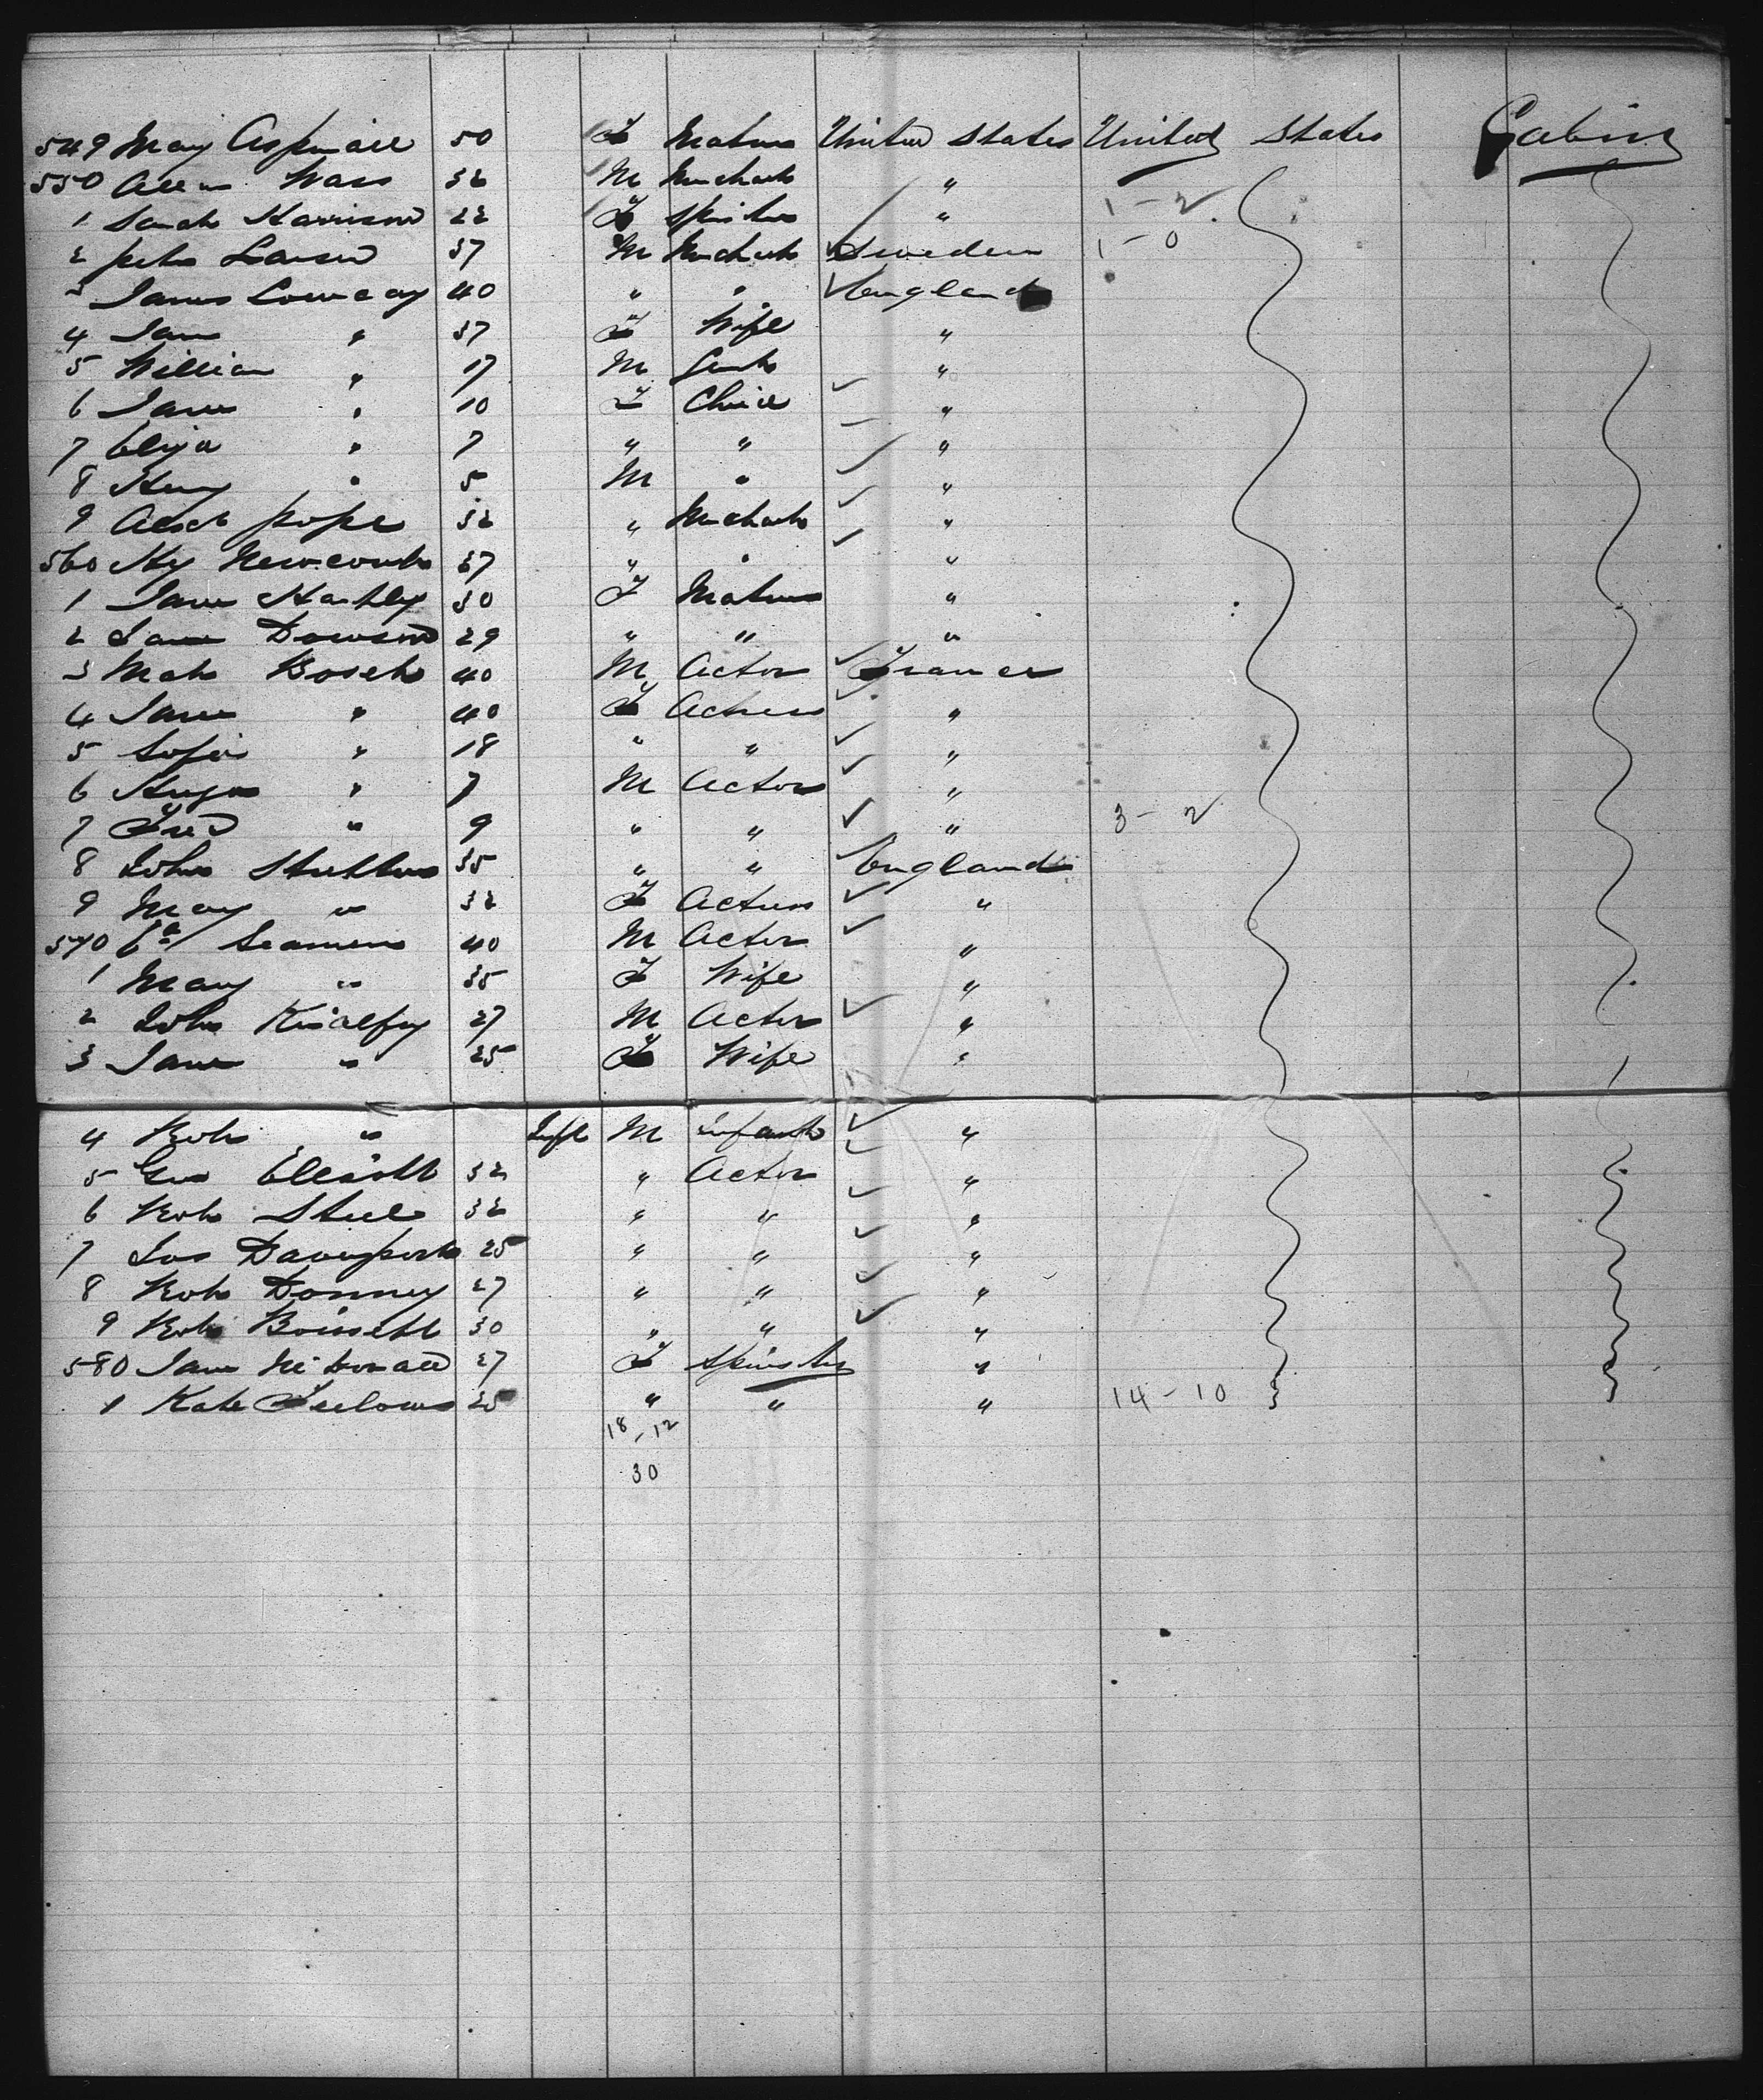 549 Mary Aspinall 50 F Matron United States United States Cabin
550 Allen Wass 32 M Merchant "
1 Sarah Harrison 22 F Spinster " 1-2
2 John Larsen 37 M Merchant Sweden 1-0
3 James Conway 40 " " England
4 Jane " 37 F Wife "
5 William " 17 M Gent "
6 Jane " 10 F Child "
7 Eliza " 7 " " "
8 Henry " 5 M " "
9 Alexdr Pope 32 " Merchant "
560 Hy Newcomb 37 " " "
1 Jane 30 F Matron "
2 Jane Dawson 29 " " "
3 40 M Actor France
4 Jane " 40 F Actress "
5 Sofia " 18 " " "
6 Hugo " 7 M Actor "
7 Fred " 9 " " " 3-2
8 John 35 " " England
9 Mary " 32 F Actress "
570 Seamen 40 M Actor "
1 Mary " 35 F Wife "
2 John Kiralfy 27 M Actor "
3 Jane " 25 F Wife "
4 Robt " Inft M Infant "
5 Geo Elliott 32 " Actor "
6 Robt Steel 32 " " "
7 Jos Davenport 25 " " "
8 Robt Donney 27 " " "
9 Robt 30 " " "
580 Jane McDonald 27 F Spinster "
1 Kate 25 " " " 14-10
18-12
30